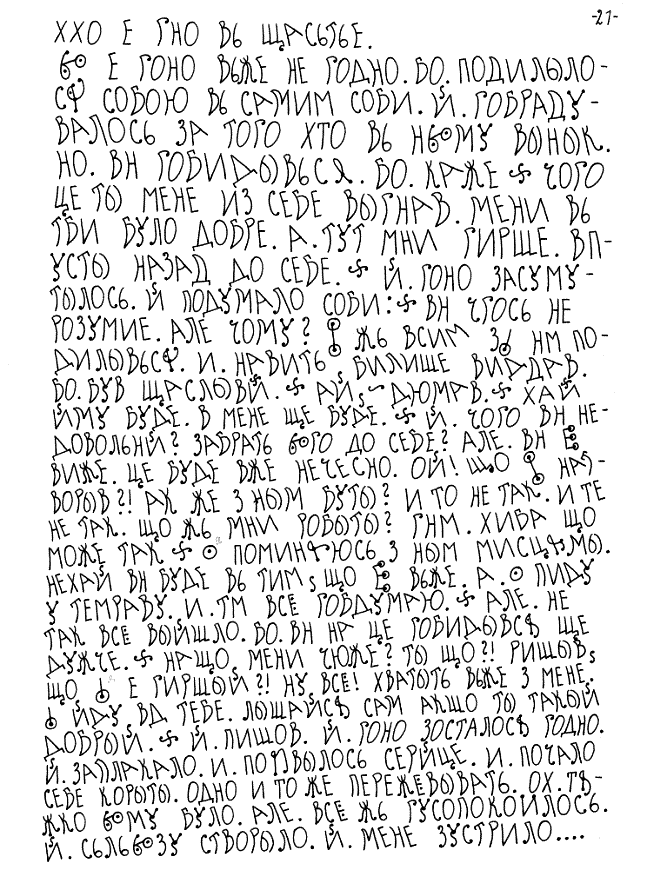 -21-
ХХО Е ГНО ВЬ ЩАСЬТЬЕ.
Е ГОНО ВЬЖЕ НЕ ГОДНО. БО. ПОДИЛЫЛО-
СЯ СОБОЮ ВЬ САМИМ СОБИ. Й. ГОБРАДУ-
ВАЛОСЬ ЗА ТОГО ХТО ВЬ НЬОМУ ВЫНЫК.
НО. ВН ГОБИДЫВЬСЯ. БО. КАЖЕ ЧОГО
ЦЕ ТЫ МЕНЕ ИЗ СЕБЕ ВЫГНАВ. МЕНИ ВЬ
ТБИ БУЛО ДОБРЕ. А. ТУТ МНИ ГИРШЕ. ВП-
УСТЫ НАЗАД ДО СЕБЕ. Й. ГОНО ЗАСУМУ-
ТЫЛОСЬ. Й ПОДУМАЛО СОБИ: ВН ЧТОСЬ НЕ
РОЗУМИЕ. АЛЕ ЧОМУ? ЖЬ ВСИМ З НМ ПО-
ДИЛЫВЬСЯ. И. НАВИТЬ БИЛИЩЕ ВИДДАВ.
БО. БУВ ЩАСЛЫВЙ. АЙ, ДЮМАВ. ХАЙ
ЙМУ БУДЕ. В МЕНЕ ЩЕ БУДЕ. Й. ЧОГО ВН НЕ-
ДОВОЛЬНЙ? ЗАБРАТЬ ЬОГО ДО СЕБЕ? АЛЕ. ВН Е
ВИЖЕ. ЦЕ БУДЕ ВЖЕ НЕЧЕСНО. ОЙ! ЩО НАТ-
ВОРЫВ?! АК ЖЕ З НЫМ БУТЫ? И ТО НЕ ТАК. И ТЕ
НЕ ТАК. ЩО ЖЬ МНИ РОБЫТЫ? ГНМ. ХИБА ЩО
МОЖЕ ТАК ПОМИНЯЮСЬ З НЫМ МИСЦЯМЫ.
НЕХАЙ ВН БУДЕ ВЬ ТИМ, ЩО Е ВЬЖЕ. А. ПИДУ
У ТЕМРАВУ. И. ТМ ВСЕ ГОБДУМАЮ. АЛЕ. НЕ
ТАК ВСЕ ВЫЙШЛО. БО. ВН НА ЦЕ ГОБИДЫВСЯ ЩЕ
ДУЖЧЕ. НАЩО МЕНИ ЧЮЖЕ? ТЫ ЩО?! РИШЫВ,
ЩО Е ГИРШЫЙ?! НУ, ВСЕ! ХВАТЫТЬ ВЬЖЕ З МЕНЕ.
ЙДУ ВД ТЕБЕ. ЛЫЩАЙСЯ САМ АКЩО ТЫ ТАКЫЙ
ДОБРЫЙ. Й. ПИШОВ. Й. ГОНО ЗОСТАЛОСЯ ГОДНО.
Й. ЗАПЛАКАЛО. И. ПОЯВЫЛОСЬ СЕРЙЦЕ. И. ПОЧАЛО
СЕБЕ КОРЫТЫ. ОДНО И ТО ЖЕ ПЕРЕЖЕВЫВАТЬ. ОХ. ТЯ-
ЖКО ЬОМУ БУЛО. АЛЕ. ВСЕ ЖЬ ГУСПОКОИЛОСЬ.
Й. СЬЛЬОЗУ СТВОРЫЛО. Й. МЕНЕ ЗУСТРИЛО....